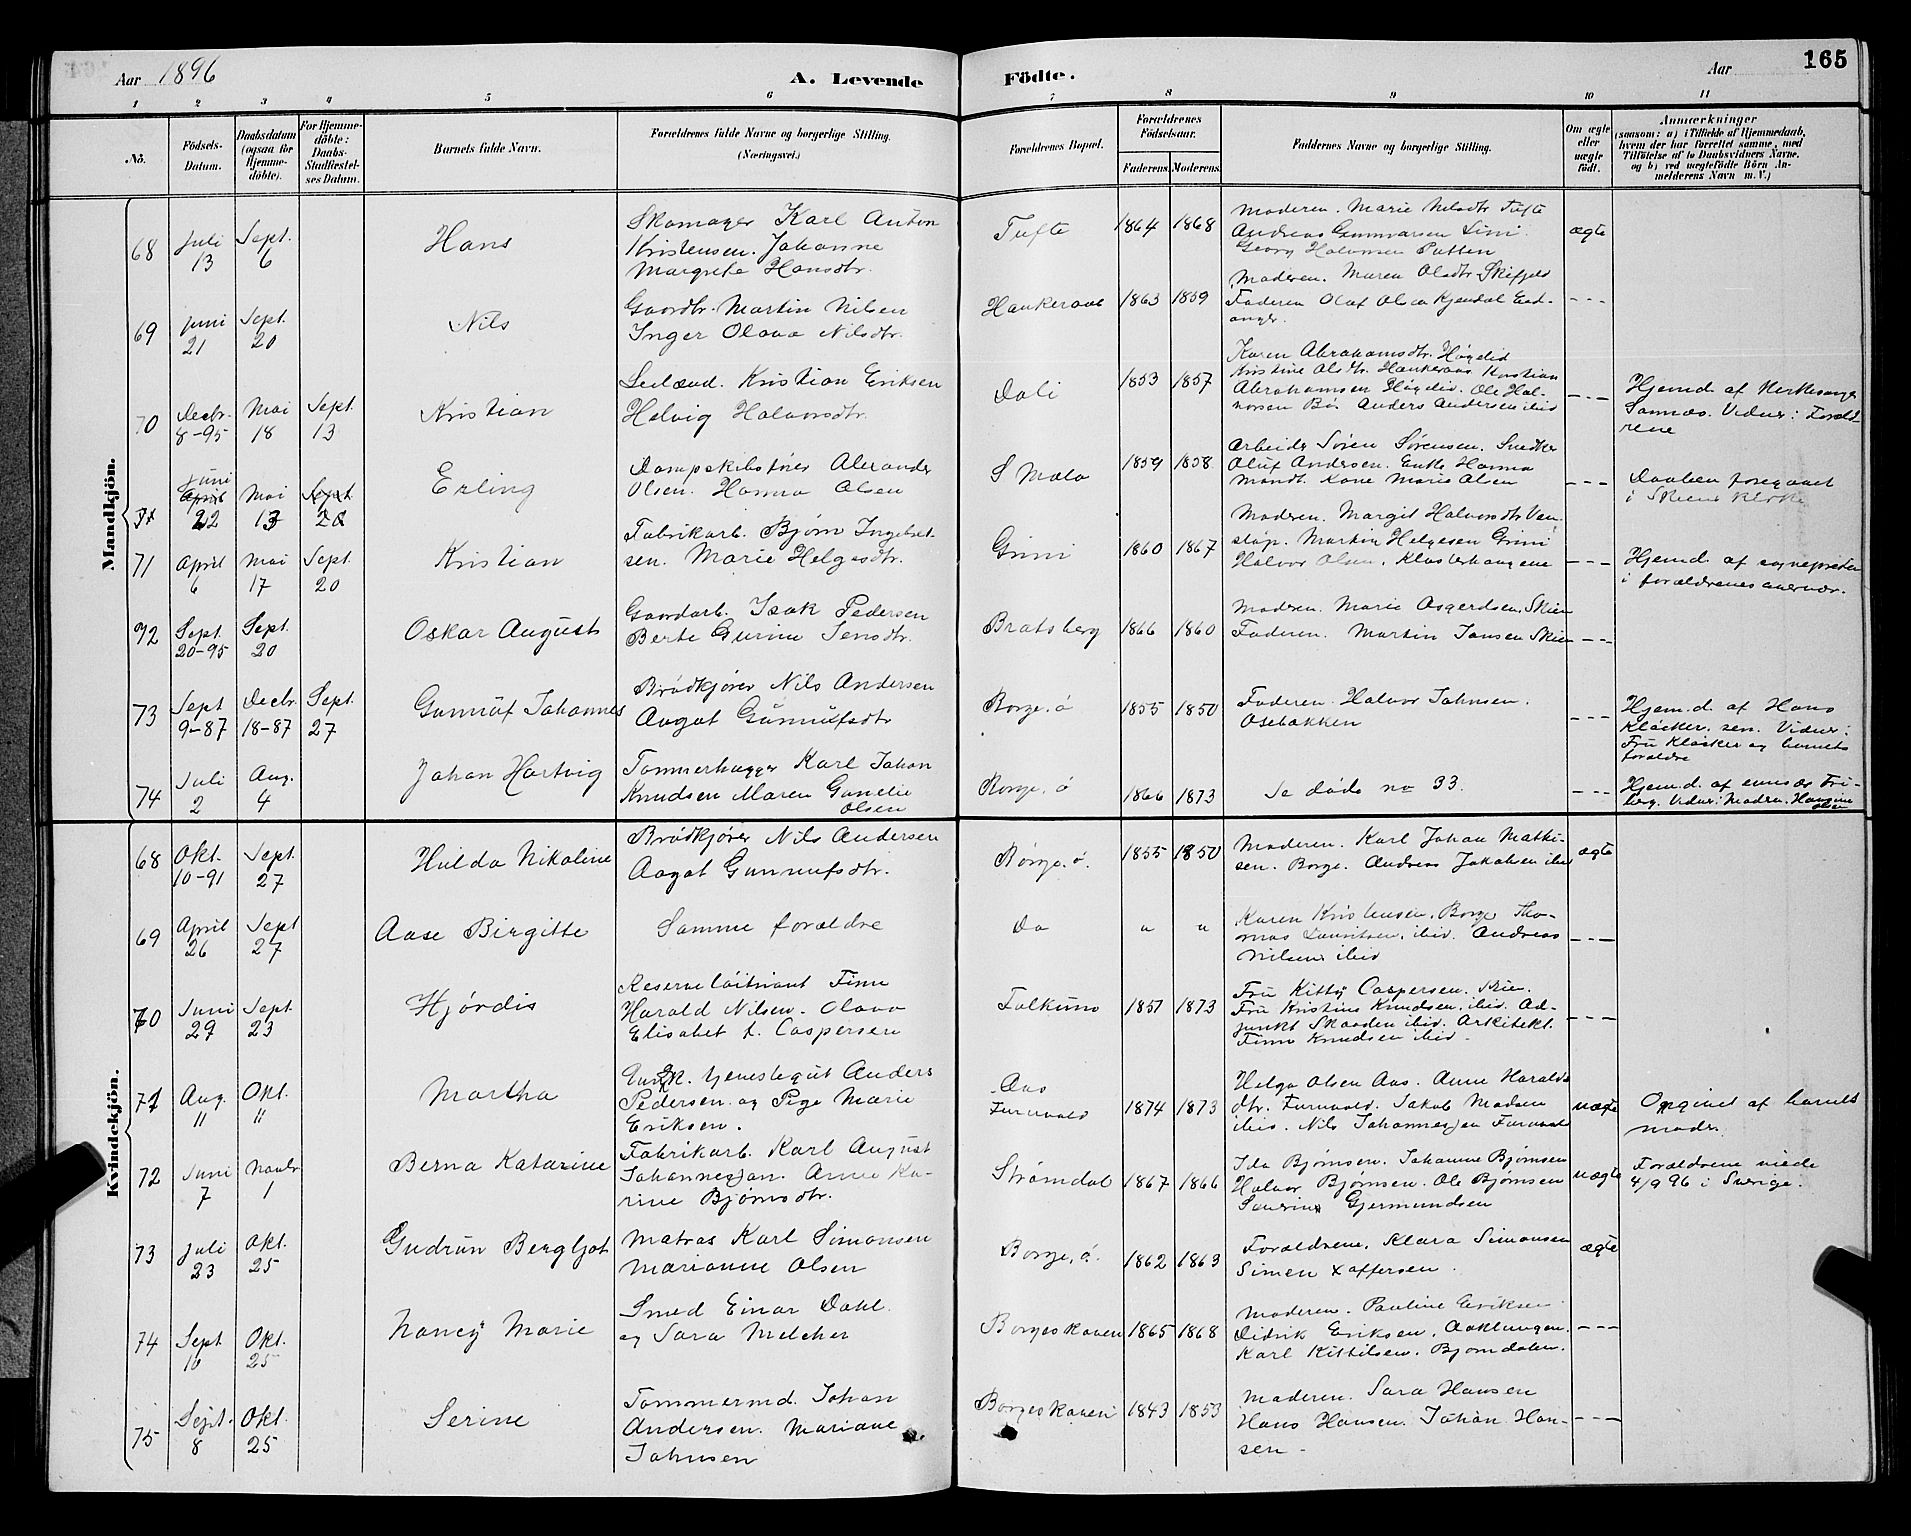 Aar 1896
A. Levende
Födte.
Aar
165
1 2 3 4 5 6 7 8 9 10 11
No.
Födsels-
Datum.
Daabsdatum
(ogsaa for
Hjemme-
döbte).
For Hjemme-
döbte:
Daabs-
Stadfæstel-
ses Datum.
Barnets fulde Navn.
Forældrenes fulde Navne og borgerlige Stilling.
(Næringsvei.)
Forældrenes Bopæl.
Forældrenes
Födselsaar.
Faderens. Moderens.
Faddernes Navne og borgerlige Stilling.
Om ægte
eller
uægte
födt.
Anmærkninger
(saasom: a) i Tilfælde af Hjemmedaab,
hvem der har forrettet samme, med
Tilföielse af to Daabsvidners Navne,
og b) ved uægtefödte Börn An-
melderens Navn m. V.)
Mandkjön.
68
Juli
13
Sept.
6
Hans
Skomager Karl Anton
Kristensen. Johanne
Margrete Hansdtr.
Tufte
1864 1868
Moderen. Marie Nilsdtr Tufte
Andreas Gunnarsen Lini.
Georg Halvorsen Putten
ægte
69
Juni
21
Sept.
20
Nils
Gaardbr. Martin Nilsen
Inger Olava Nilsdtr.
Haukeraae
1863 1859
Moderen. Maren Olsdtr Skifjeld
Faderen Olaf Olsen Kjendal Eid-
anger.
- - -
70
Decbr.
8-95
Mai
18
Sept.
13
Kristian
Leilænd. Kristian Eriksen
Helvig Halvorsdtr.
Dali
1853 1857
Karen Abrahamsdtr. Høgelid
Kristine Olsdtr. Haukeraae Kristian
Abrahamsen Høgelid. Ole Hal-
vorsen Bö. Anders Andersen ibid
- - -
Hjemd. af Kirkesanger
Sannæs. Vidner: Foræld-
rene
71
Juni
22
Mai
13
Sept.
20
Erling
Dampskibsfører Alexander
Olsen. Hanna Olsen
S Mæla
1859 1858
Arbeider Sören Sørensen. Snedker
Oluf Andersen. Enke Hanna
Mandt. Kone Marie Olsen
- - -
Daaben foregaaet
i Skiens Kirke
71
April
6
Mai
17
Sept.
20
Kristian
Fabrikarb. Bjørn Ingebret-
sen. Marie Helgesdtr.
Grini
1860 1867
Moderen. Margit Halvorsdtr Ven-
støp. Martin Helgesen Grini
Halvor Olsen. Klosterhaugene
- - -
Hjemd. af sognepresten
i forældrenes nærvær.
72
Sept.
20-95
Sept.
20
Oskar August
Gaardarb. Isak Pedersen
Berte Gurine Jensdtr.
Bratsberg
1866 1860
Moderen. Marie Asgerdsen, Skien
Faderen. Martin Jansen Skien
- - -
73
Sept
9-87
Decbr.
18-87
Sept.
27
Gunnuf Johannes
Brödkjører Nils Andersen
Aagot Gunnufsdtr
Borge, ö
1855 1850
Faderen. Halvor Johnsen.
Osebakken
- - -
Hjem.d. af Hans
Kløcker, sen. Vidner:
Fru Kløcker og barnets
forældre
74
Juli
2
Aug.
4
Johan Hartvig
Tømmerhugger Karl Johan
Knudsen Maren Gunelie
Olsen
Borge, ö
1866 1873
Se döde no 33.
- - -
Hjem.d. af emissær Fri-
berg. Vidner: Modren. Hangine
Olsen
Kvindekjön.
68
Okt.
10-91
Sept.
27
Hulda Nikoline
Brödkjører Nils Andersen
Aagot Gunnufsdtr.
Børge, ö.
1855 1850
Moderen. Karl Johan Mathi-
sen. Borge. Andreas Jakobsen ibid
ægte
69
April
26
Sept
27
Aase Birgitte
Samme forældre
Do
" "
Karen Kristensen. Borge Tho-
mas Lauritsen, ibid. Andreas
Nilsen ibid
- - -
70
Juni
29
Sept.
23
Hjørdis
Reserveløitnant Finn
Harald Nilsen. Olava
Elisabet f. Caspersen
Falkum
1857 1873
Fru Kitty Caspersen. Skien.
Fru Kristine Knudsen. ibid. Ad-
junkt Skaaden ibid. Arkitekt.
Finn Knudsen ibid.
- - -
71
Aug.
11
Okt.
11
Martha
Ungk. tjenestegut Anders
Pedersen og Pige Marie
Eriksen.
Aas
Furuvald
1874 1873
Helga Olsen Aas. Anne Haralds
dtr. Furuvald. Jakob Madsen
ibid. Nils Johannessen Furuvald
uægte
Opgivet af barnets
moder.
72
Juni
7
Novbr
1
Berna Katarine
Fabrikarb. Karl August
Johannesjan. Anne Ka-
rine Bjørnsdtr.
Strømdal
1867 1866
Ida Bjørnsen. Johanne Bjørnsen
Halvor Bjørnsen. Ole Bjørnsen
Severine Gjermundsen
uægte
Forældrene viede
4/9 96 i Sverige.
73
Juli
23
Okt.
25
Gudrun Bergljot
Matros Karl Simonsen
Marianne Olsen
Borge, ö.
1862 1863
Forældrene, Klara Simonsen
Simen Xoffersen.
ægte
74
Sept
10
Okt.
25
Nancy Marie
Smed Einar Dahl.
og Sara Melcher
Borgeskaven
1865 1868
Moderen. Pauline Eriksen.
Didrik Eriksen. Aaklungen.
Karl Kittilsen. Bjørndalen.
- - -
75
Sept.
8
Okt.
25
Serine
Tømmermd. Johan
Andersen. Mariane
Johnsen
Borgeskaven
1843 1853
Moderen. Sara Hansen
Hans Hansen. Johan Han-
sen -
- - -